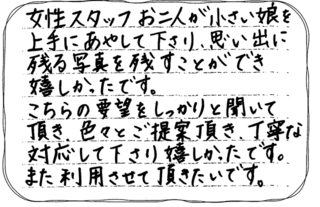 女性スタッフお二人が小さい娘を
上手にあやして下さり、思い出に
残る写真を残すことができ
嬉しかったです。
こちらの要望をしっかりと聞いて
頂き、色々とご提案頂き、丁寧な
対応して下さり嬉しかったです。
また利用させて頂きたいです。